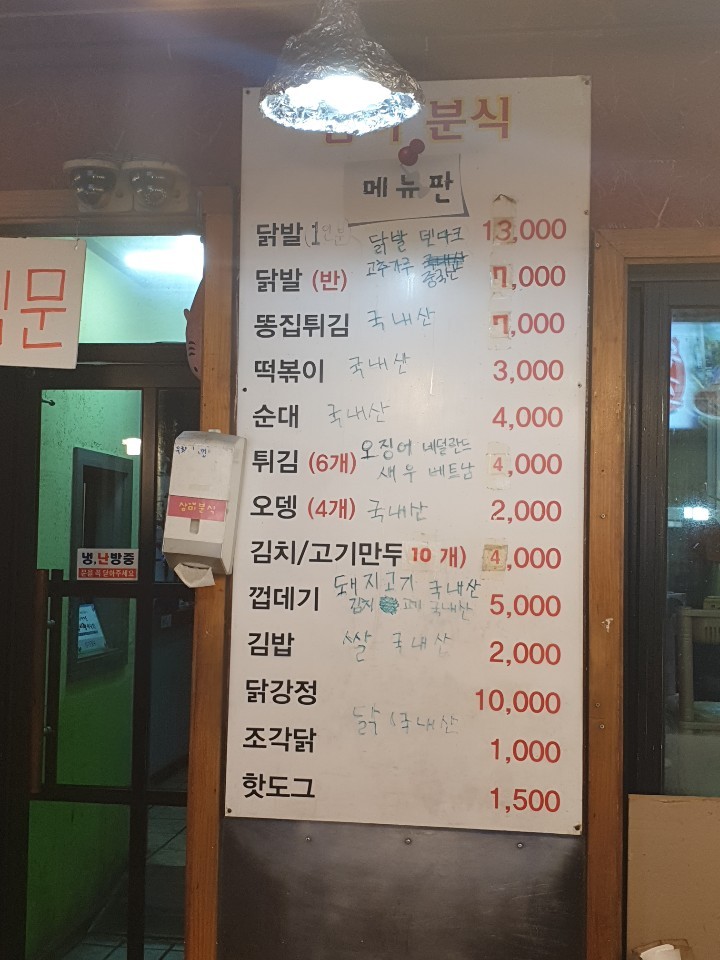 분식
메뉴판
닭발 1인분 닭발 덴마크 13,000
닭발 (반) 고추가루 중국산 7,000
똥집튀김 국내산 7,000
떡볶이 국내산 3,000
순대 국내산 4,000
튀김 (6개) 오징어 네덜란드 4,000
새우 베트남
오뎅 (4개) 국내산 2,000
김치/고기만두 10개) 4,000
돼지고기 국내산
껍데기 김치 고기 국내산 5,000
김밥 쌀 국내산 2,000
닭강정 10,000
닭 국내산
조각닭 1,000
핫도그 1,500
문
삼미분식
냉,난방중
문을 꼭 닫아주세요